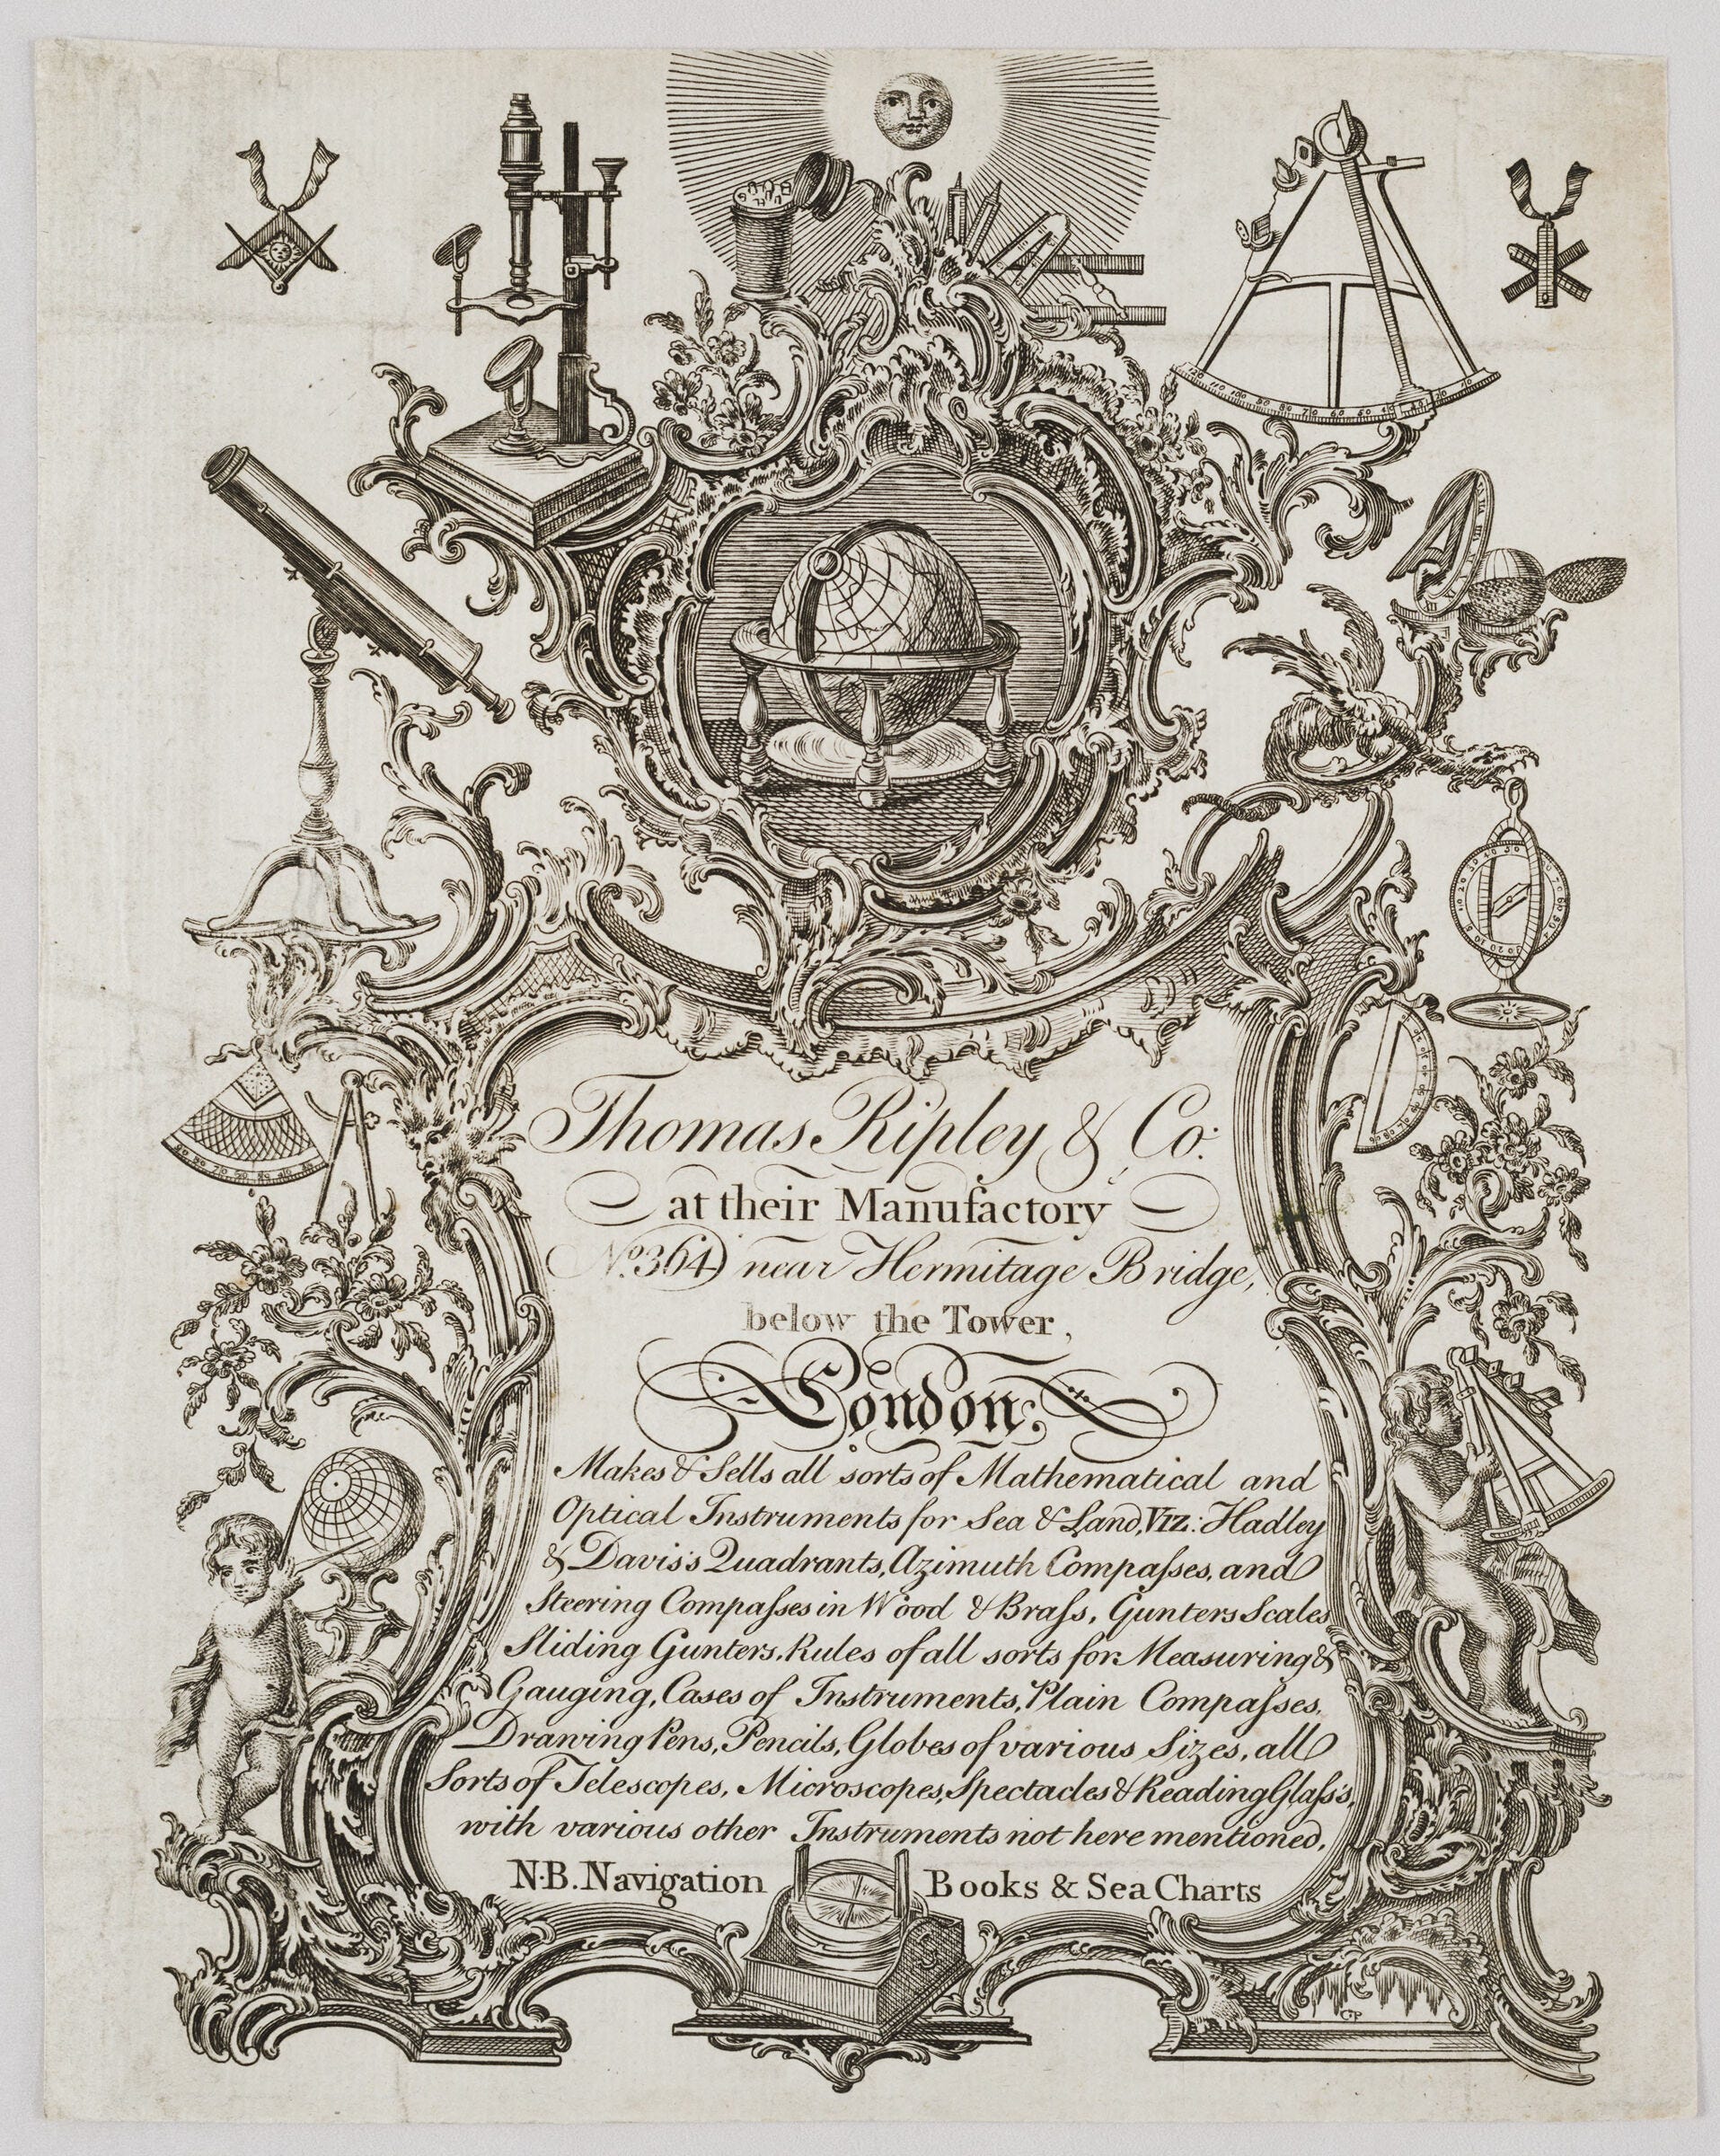 Thomas Ripley & Co:
at their Manufactory
No. 364 near Hermitage Bridge,
below the Tower,
London.
Makes & Sells all sorts of Mathematical and
Optical Instruments for Sea & Land, VIZ: Hadley
& Davis's Quadrants, Azimuth Compaſses, and
Steering Compaſses in Wood & Braſs, Gunters Scales
Sliding Gunters, Rules of all sorts for Measuring &
Gauging, Cases of Instruments, Plain Compaſses,
Drawing Pens, Pencils, Globes of various Sizes, all
Sorts of Telescopes, Microscopes, Spectacles & Reading Glaſs's,
with various other Instruments not here mentioned.
N.B. Navigation Books & Sea Charts